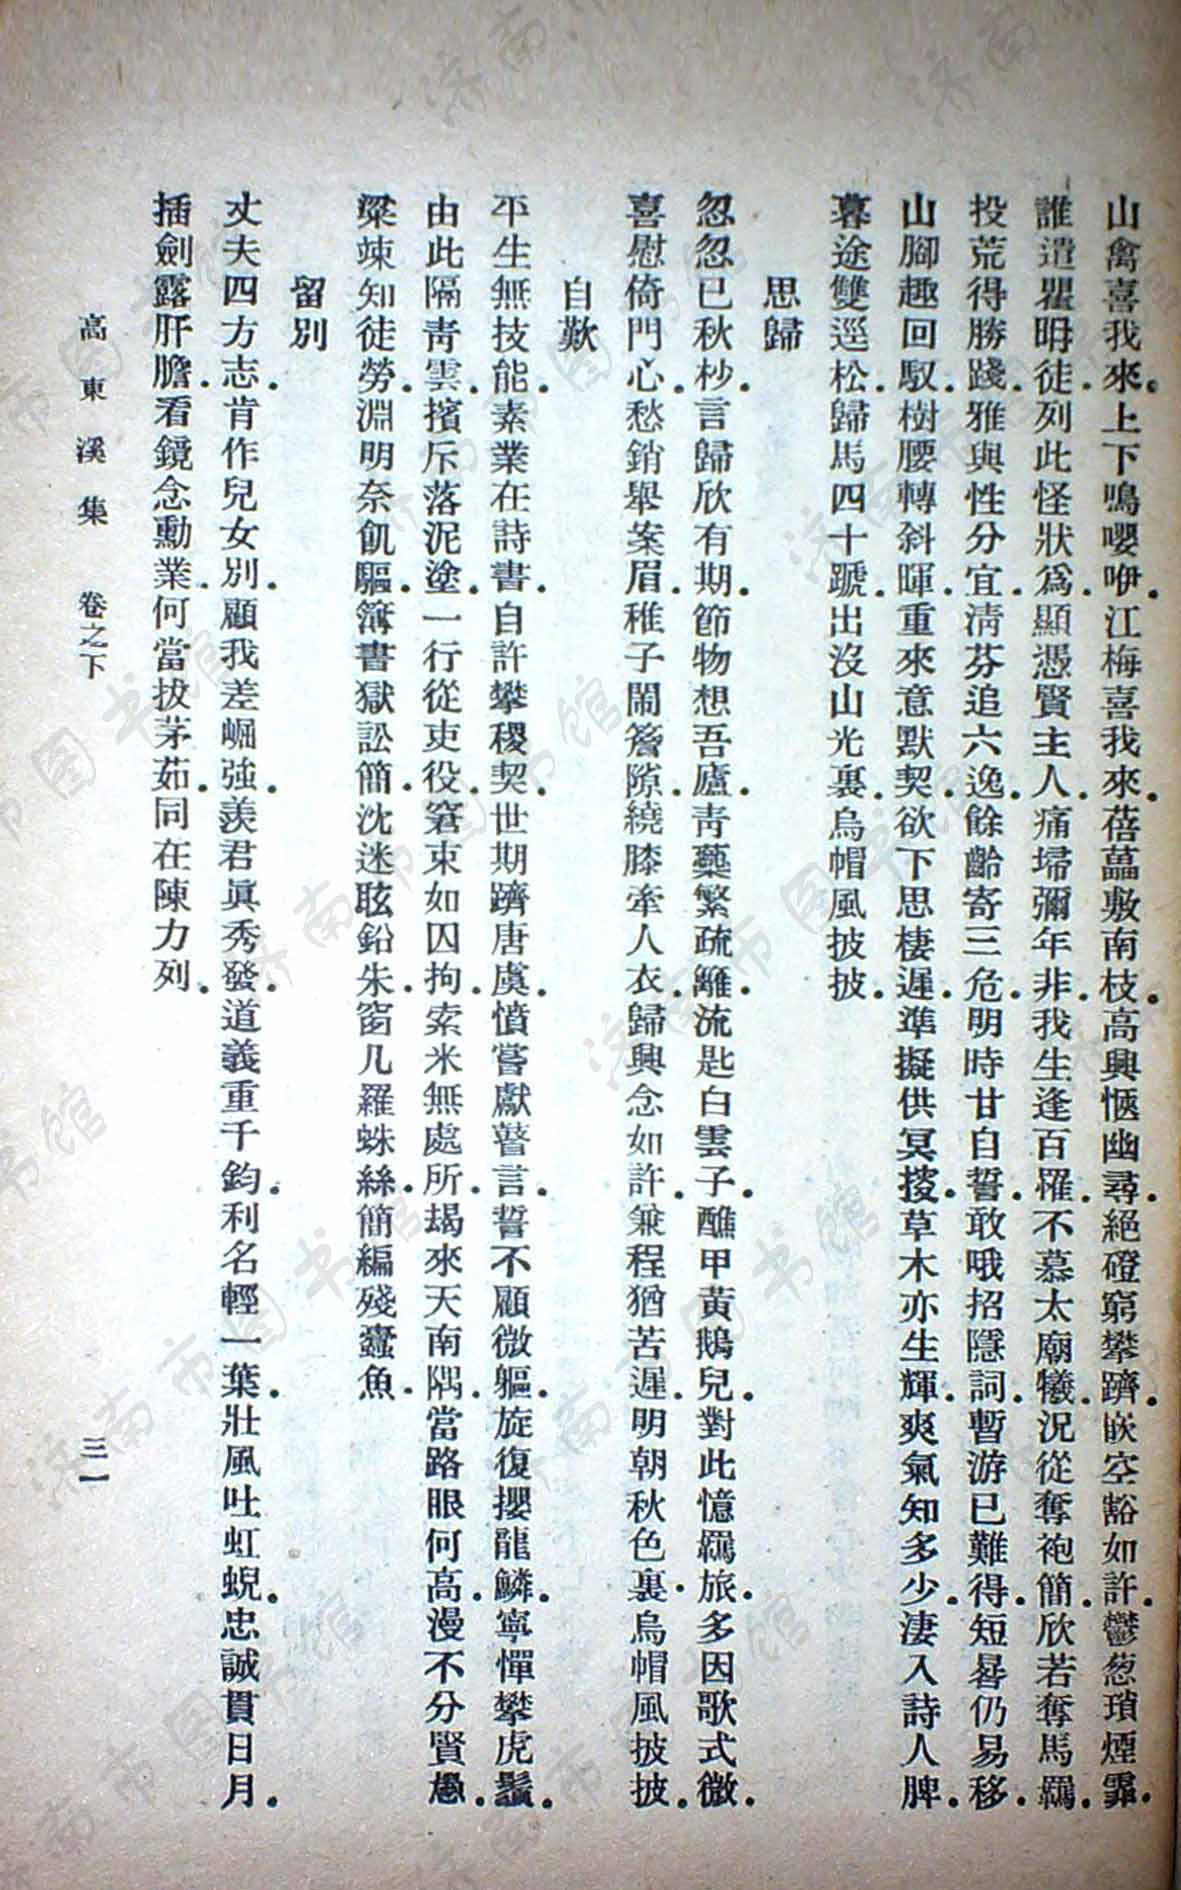 山禽喜我來上下鳴嚶咿江梅喜我來蓓蕌敷南枝高興愜幽尋絕磴窮攀躋嵌空豁如許鬱葱瑣煙霏
誰遣瞿明徒列此怪狀爲顯憑賢主人痛埽彌年非我生逢百罹不慕太廟犧況從奪袍簡欣若奪馬羈
投荒得勝踐雅與性分宜清芬追六逸餘齡寄三危明時甘自誓敢哦招隱詞暫游已難得短晷仍易移
山腳趣回馭樹腰轉斜暉重來意默契欲下思棲遲準擬供冥搜草木亦生輝爽氣知多少淒入詩人脾
暮途雙逕松歸馬四十蹏出沒山光裏烏帽風披披
思歸
忽忽已秋杪言歸欣有期節物想吾廬青蘂繁疏籬流匙白雲子醮甲黃鵝兒對此憶羈旅多因歌式微
喜慰倚門心愁銷舉案眉稚子鬧簷隙繞膝牽人衣歸興念如許兼程猶苦遲明朝秋色裏烏帽風披披
自歎
平生無技能素業在詩書自許攀稷契世期躋唐虞憤嘗獻瞽言誓不顧微軀旋復攖龍鱗寧憚攀虎鬚
由此隔青雲擯斥落泥塗一行從吏役窘束如囚拘索米無處所朅來天南隅當路眼何高漫不分賢愚
梁竦知徒勞淵明奈飢驅簿書獄訟簡沈迷眩鉛朱窗几羅蛛絲簡編殘蠹魚
留別
丈夫四方志肯作兒女別顧我差崛強羨君眞秀發道義重千鈞利名輕一葉壯風吐虹蜺忠誠貫日月
插劍露肝膽看鏡念勳業何當拔茅茹同在陳力列
高東溪集 卷之下 三一
济南市图书馆